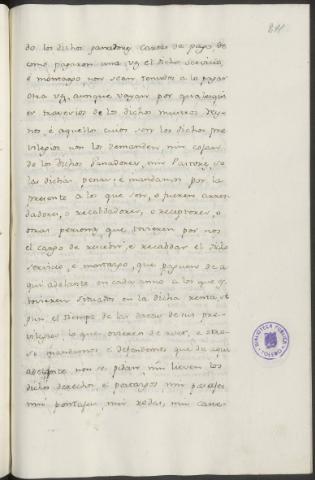 211
do los dichos ganadores cartas de pago de
como pagaron una vez el dicho servicio,
e montazgo non sean tenudos a la pagar
otra vez, aunque vayan por qualesqui
er travesios de los dichos nuestros Rey-
nos, e aquellos cuios son los dichos pre-
vilegios non los demanden, nin cojan
de los dichos Ganadores, nin Pastores, so
las dichas penas, e mandamos por la
presente a los que son, o fueren arren-
dadores, o recabdadores, o receptores, o
otras personas que tovieren por nos
el cargo de recebir, e recabdar el dicho
servicio, e montazgo, que paguen de a
qui adelante en cada un año a los que
tovieren situados en la dicha renta, se
gun el tiempo de las datas de sus pre-
vilegios lo que ovieren de aver, e otro-
si mandamos e defendemos que de aqui
adelante non se pidan, nin lieven los
dichos derechos, e portazgos nin pasages
nin pontages, nin rodas, nin cane-
BIBLIOTECA PUBLICA
TOLEDO